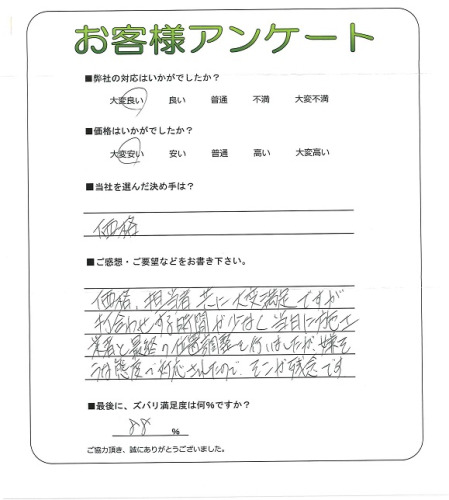 お客様アンケート
■弊社の対応はいかがでしたか？
大変良い 良い 普通 不満 大変不満
■価格はいかがでしたか？
大変安い 安い 普通 高い 大変高い
■当社を選んだ決め手は？
価格
■ご感想・ご要望などをお書き下さい。
価格、担当者共に大変満足ですが
打合わせする時間が少なく当日に施工
業者と最終の位置調整を行いましたが、嫌そ
うな態度で対応されたので、そこが残念です
■最後に、ズバリ満足度は何％ですか？
88 ％
ご協力頂き、誠にありがとうございました。